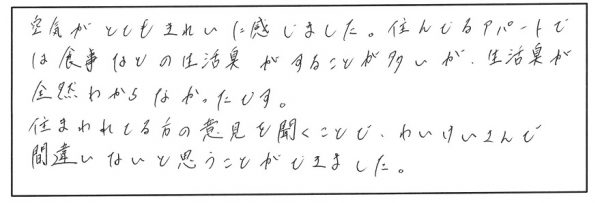 空気がとてもきれいに感じました。住んでるアパートで
は食事などの生活臭がすることが多いが、生活臭が
全然わからなかったです。
住まわれてる方の意見を聞くことで、わいけいさんで
間違いないと思うことができました。